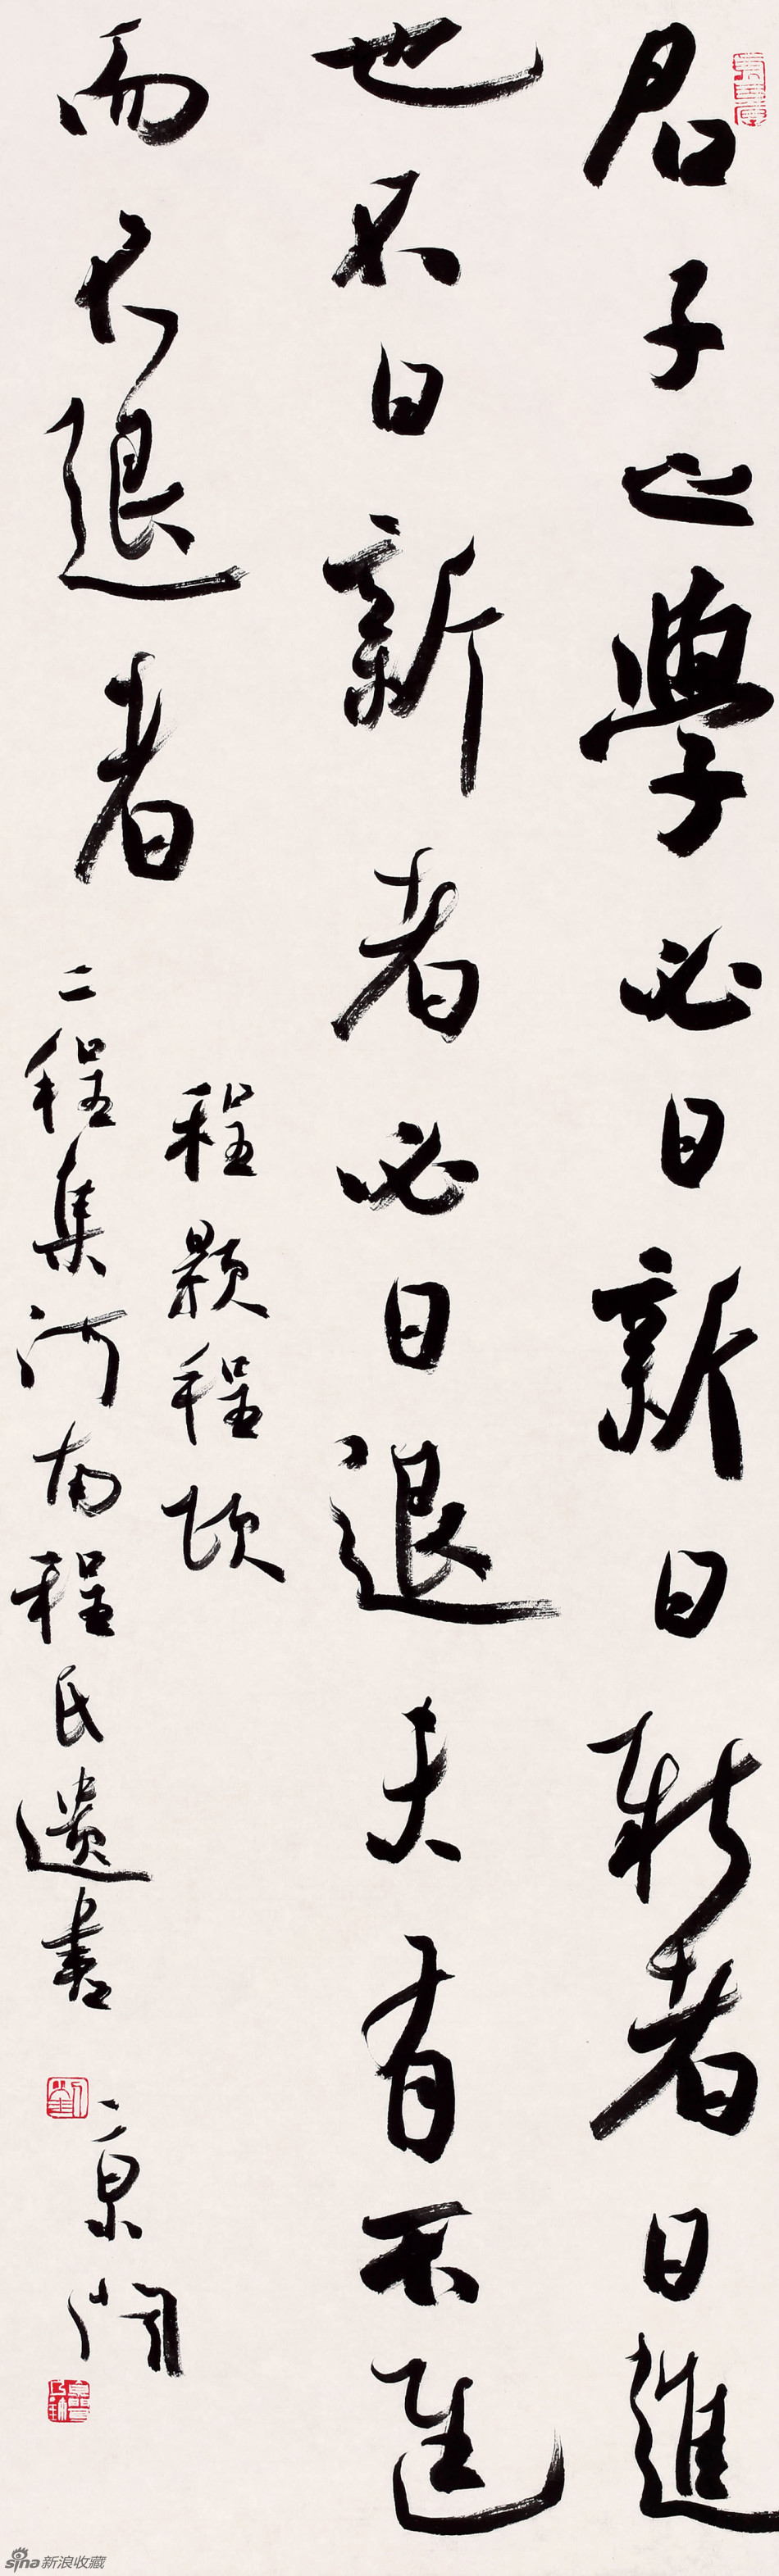 君子之學必日新日新者日進
也不日新者必日退未有不進
而不退者
程顥程頤
二程集河南程氏遺書
sina新浪收藏